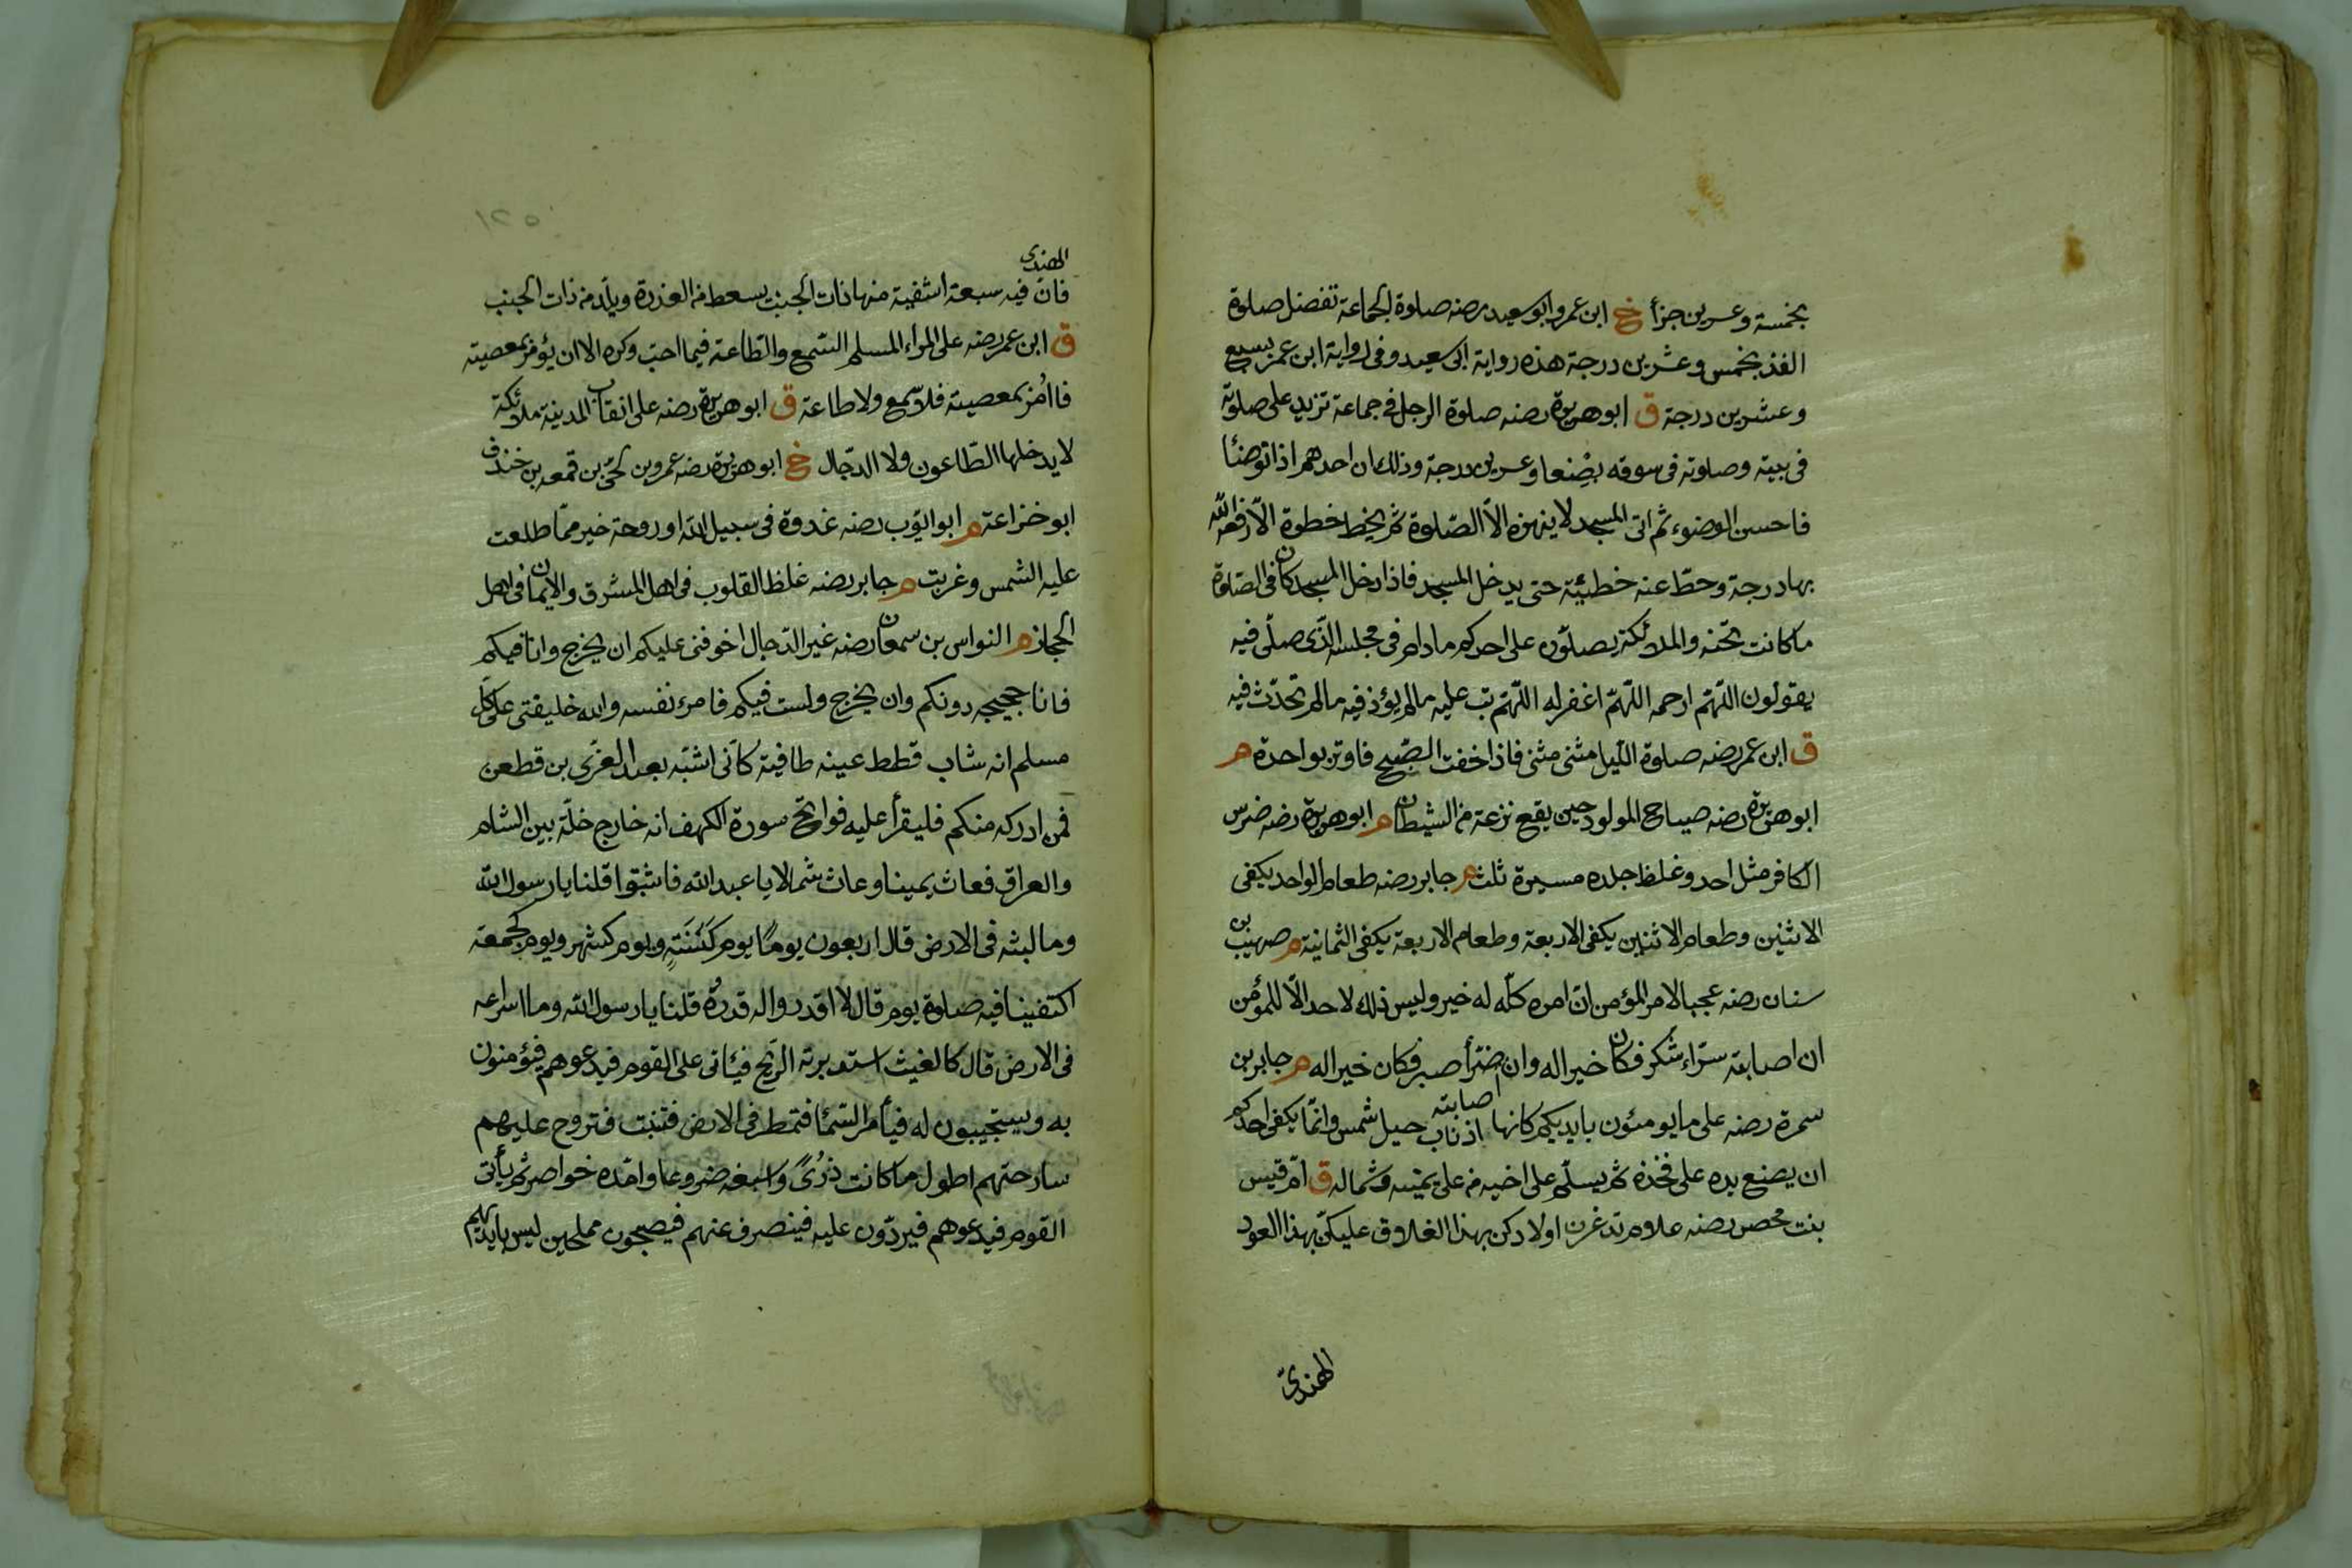 بخمسة وعسرين جزأ خ ابن عمر وابو سعيد رضه صلوة الجماعة تفضل صلوة
الفذ بخمس وعشرين درجة هذه رواية ابى سعيد وفى رواية ابن عمر بسبع
وعشرين درجة ق ابو هريرة رضه صلوة الرجل فى جماعة تزيد على صلوته
فى بيته وصلوته فى سوقه بضعا وعسرين درجة وذلك ان احدهم اذا توضأ
فاحسن الوضوء ثم اتى المسجد لا ينهزه الّا الصّلوة ثم يخط خطوة الّا رفعه الله
بها درجة وحطّ عنه خطيئة حتى يدخل المسجد فاذا دخل المسجد كان فى الصّلوة
ما كانت تحبسه والملائكة يصلّون على احدكم ما دام فى مجلسه الّذى صلّى فيه
يقولون اللّهمّ ارحمه اللّهمّ اغفر له اللّهمّ تب عليه ما لم يؤذ فيه ما لم تحدّث فيه
ق ابن عمر رضه صلوة اللّيل مثنى مثنى فاذا خفت الصّبح فاوتر بواحدة م
ابو هريرة رضه صياح المولود حين يقع نزعة من الشيطان م ابو هريرة رضه ضرس
الكافر مثل احد وغلظ جلده مسيرة ثلث م جابر رضه طعام الواحد يكفى
الاثنين وطعام الاثنين يكفى الاربعة وطعام الاربعة يكفى الثمانية م صهيب بن
سنان رضه عجبا لامر المؤمن انّ امره كلّه له خير وليس ذلك لاحد الّا للمؤمن
ان اصابته سرّاء شكر فكان خيرا له وان اصابته ضرّأ صبر فكان خيرا له م جابر بن
سمرة رضه على ما يومئون بايديكم كانها اذناب خيل شمس وانّما يكفى احدكم
ان يضع يده على فخذه ثم يسلّم على اخيه من على يمينه وشماله ق امّ قيس
بنت محصن رضه علام تدغرن اولادكن بهذا العلاق عليكنّ بهذا العود
الهندىّ
١٢٥
الهندى
فانّ فيه سبعة اشفية منها ذات الجنب يسعط من العذرة ويلّد من ذات الجنب
ق ابن عمر رضه على المرء المسلم السّمع والطّاعة فيما احبّ وكره الا ان يؤمر بمعصيته
فان اُمر بمعصيته فلا سمع ولا طاعة ق ابو هريرة رضه على انقاب المدينة ملائكة
لا يدخلها الطّاعون ولا الدجّال خ ابو هريرة رضه عمرو بن لحىّ بن قمعه بن خندف
ابو خزاعة م ابو ايّوب رضه غدوة فى سبيل الله او روحة خير ممّا طلعت
عليه الشمس وغربت م جابر رضه غلظ القلوب فى اهل المشرق والايمان فى اهل
الحجاز م النواس بن سمعان رضه غير الدّجال اخوفنى عليكم ان يخرج وانا فيكم
فانا حجيجه دونكم وان يخرج ولست فيكم فامرء نفسه والله خليفتى على كل
مسلم انه شاب قطط عينه طافية كأنى اشبّه بعبد العزّى بن قطعن
فمن ادركه منكم فليقرأ عليه فواتح سورة الكهف انه خارج خلّة بين الشام
والعراق فعاث يمينا وعاث شمالا يا عبد الله فاثبتوا قلنا يا رسول الله
وما لبثه فى الارض قال اربعون يومًا يوم كَسَنَةٍ ويوم كشهر ويوم كجمعة
اكتفينا فيه صلوة يوم قال لا اقدروا له قدرُه قلنا يا رسول الله وما اسراعه
فى الارض قال كالغيث استدبرته الرّيح فيئاتى على القوم فيدعوهم فيؤمنون
به ويستجيبون له فيأمر السّمأ فتمطر فى الارض فتنبت فتروح عليهم
سارحتهم اطول ما كانت ذُرىً واسبغه ضروعا وامّده خواصر ثم يأتى
القوم فيدعوهم فيردّون عليه فينصرف عنهم فيصبحون مملحين ليس بايديهم